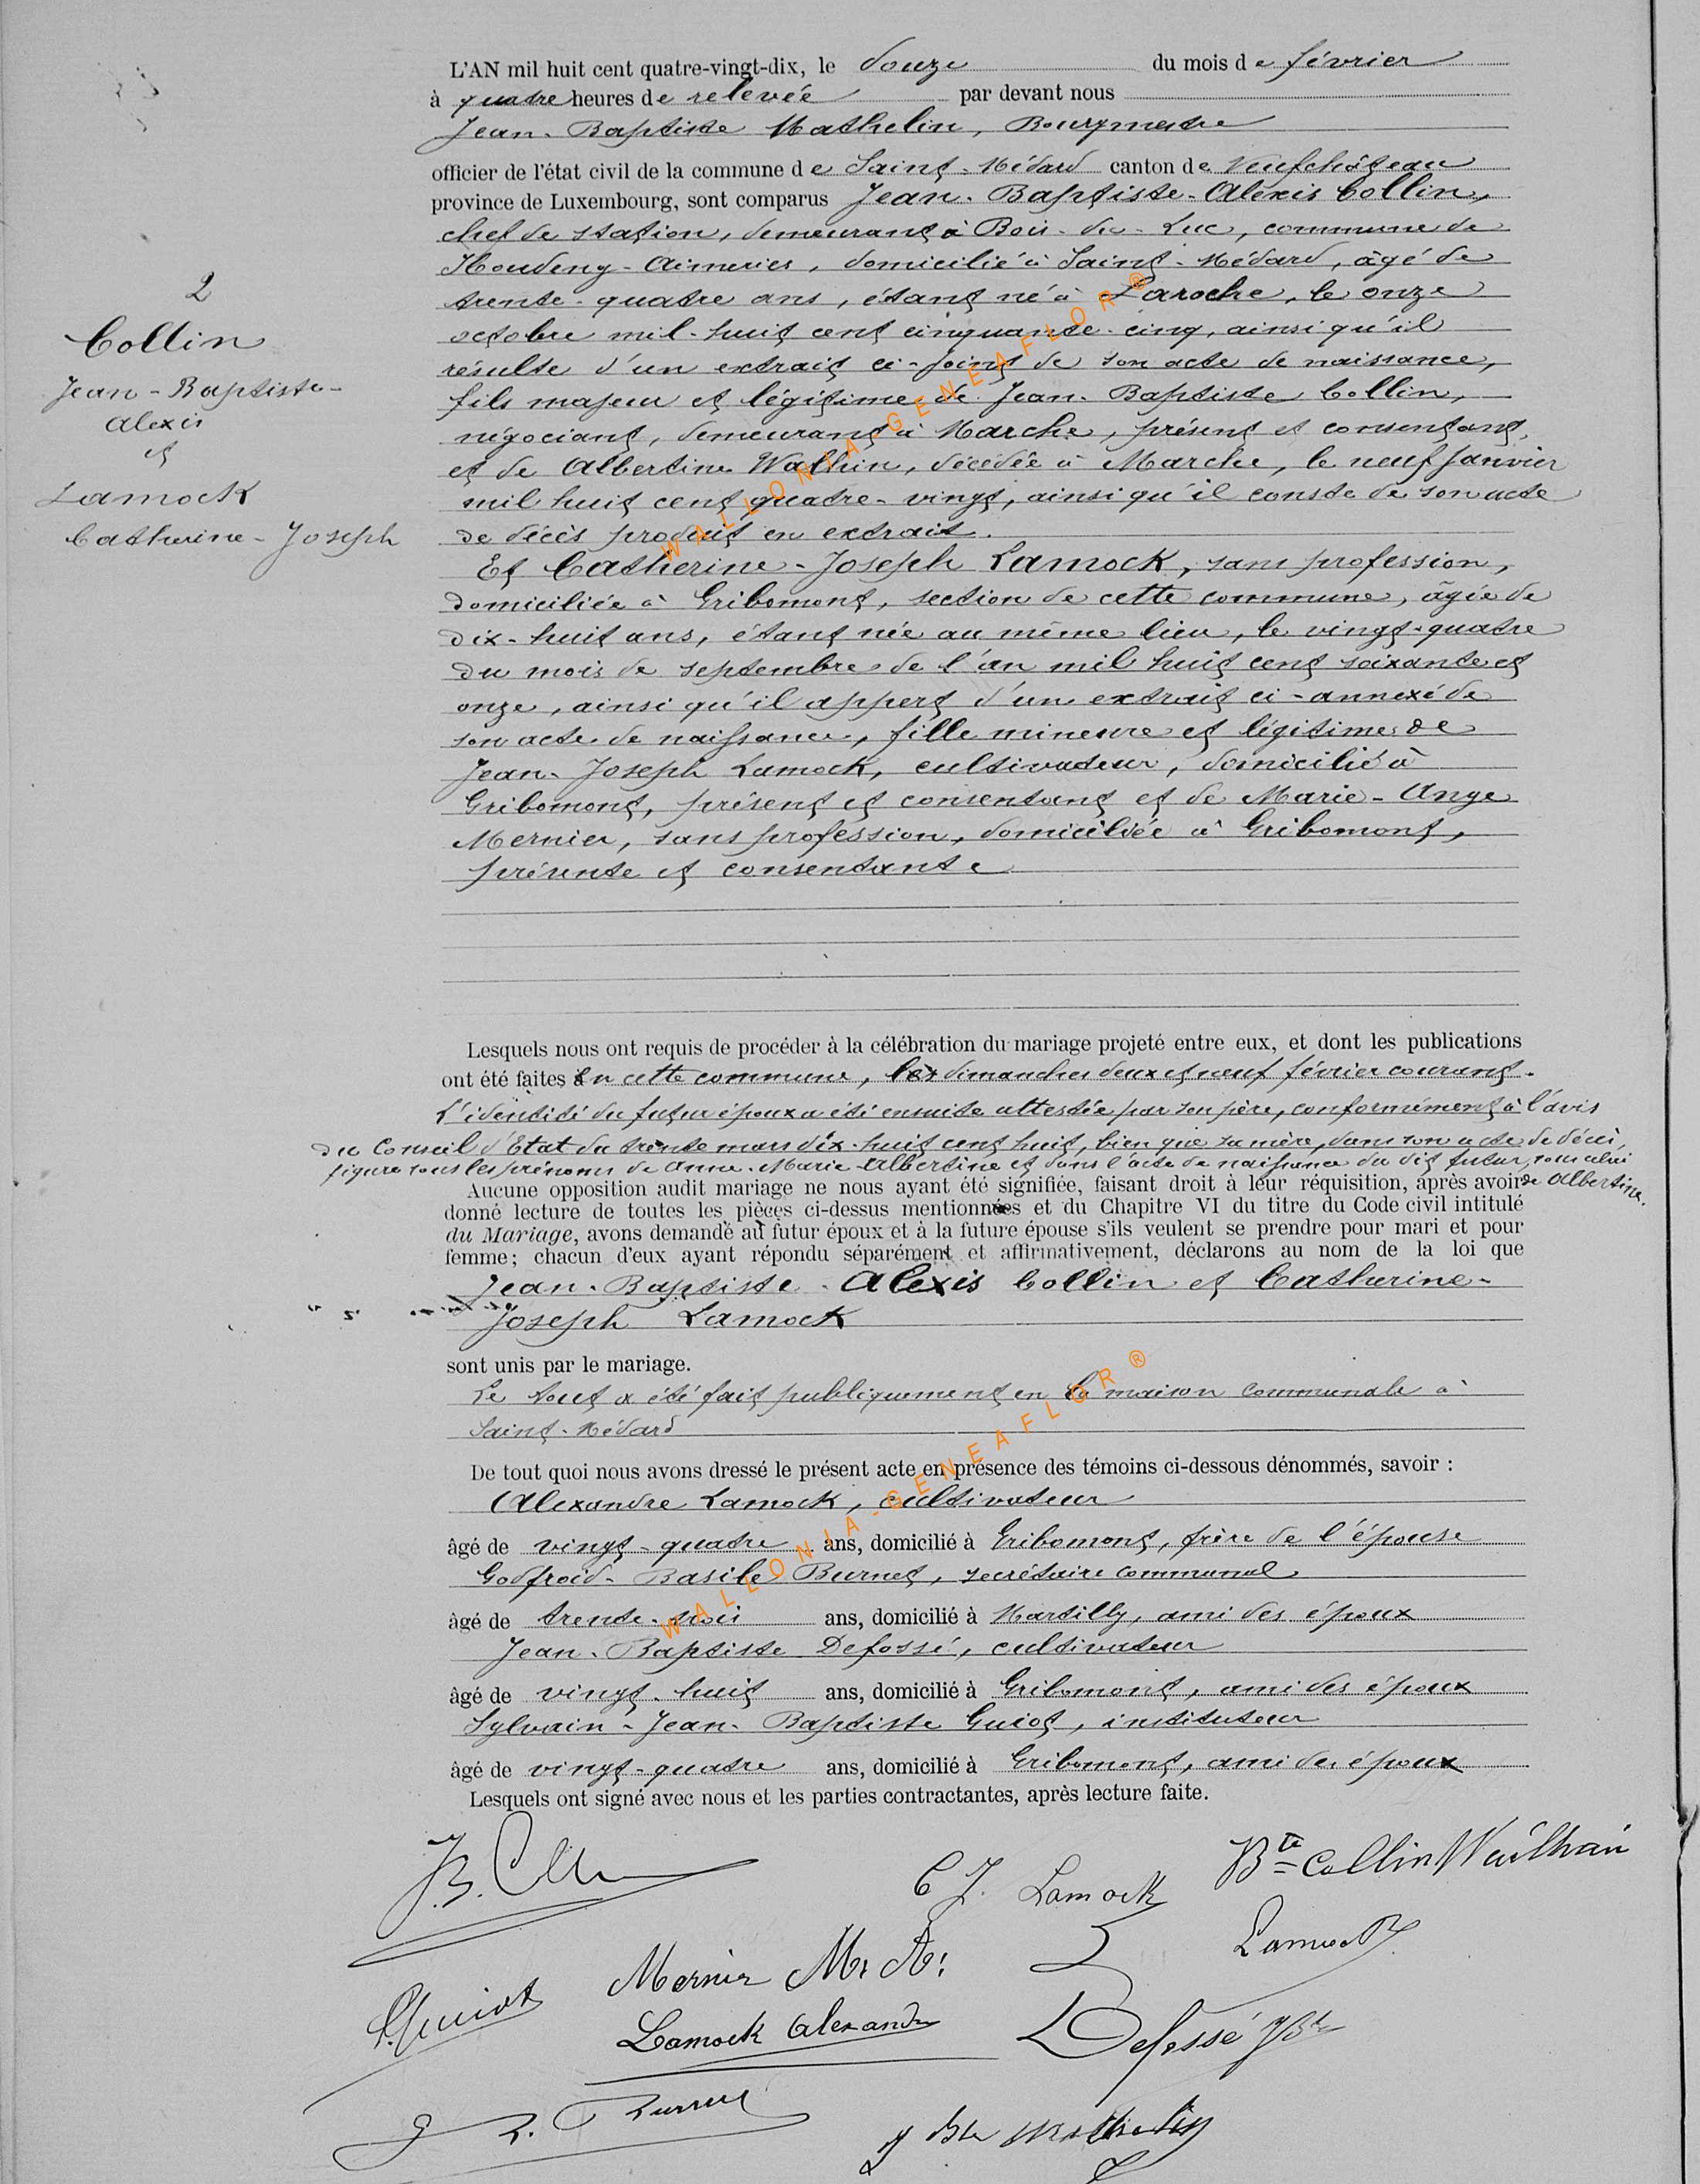 L'AN mil huit cent quatre-vingt-dix, le douze du mois de février
à quatre heures de relevée par devant nous
Jean-Baptiste Mathelin, Bourgmestre
officier de l'état civil de la commune de Saint-Médard canton de Neufchâteau
province de Luxembourg, sont comparus Jean-Baptiste-Alexis Collin,
chef de station, demeurant à Bois-du-Luc, commune de
Houdeng-Aimeries, domicilié à Saint-Médard, âgé de
trente-quatre ans, étant né à Laroche, le onze
octobre mil-huit cent cinquante-cinq, ainsi qu'il
résulte d'un extrait ci-joint de son acte de naissance,
fils majeur et légitime de Jean-Baptiste Collin,
négociant, demeurant à Marche, présent et consentant,
et de Albertine Wathin, décédée à Marche, le neuf Janvier
mil huit cent quatre-vingt, ainsi qu'il conste de son acte
de décès produit en extrait.
2
Collin
Jean-Baptiste-
Alexis
et
Lamock
Catherine-Joseph
Et Catherine-Joseph Lamock, sans profession,
domiciliée à Gribomont, section de cette commune, âgée de
dix-huit ans, étant née au même lieu, le vingt-quatre
du mois de septembre de l'an mil huit cent soixante et
onze, ainsi qu'il appert d'un extrait ci-annexé de
son acte de naissance, fille mineure et légitime de
Jean-Joseph Lamock, cultivateur, domicilié à
Gribomont, présent et consentant et de Marie-Ange
Mernier, sans profession, domiciliée à Gribomont,
présente et consentante
Lesquels nous ont requis de procéder à la célébration du mariage projeté entre eux, et dont les publications
ont été faites en cette commune, les dimanches deux et neuf février courant.
L'identité du futur époux a été ensuite attestée par son père, conformément à l'avis
du Conseil d'Etat du trente mars dix-huit cent huit, bien que sa mère, dans son acte de décès,
figure sous les prénoms de Anne-Marie-Albertine et dans l'acte de naissance du dit futur, sous celui
de Albertine.
Aucune opposition audit mariage ne nous ayant été signifiée, faisant droit à leur réquisition, après avoir
donné lecture de toutes les pièces ci-dessus mentionnées et du Chapitre VI du titre du Code civil intitulé
du Mariage, avons demandé au futur époux et à la future épouse s'ils veulent se prendre pour mari et pour
femme; chacun d'eux ayant répondu séparément et affirmativement, déclarons au nom de la loi que
Jean-Baptiste-Alexis Collin et Catherine-
Joseph Lamock
sont unis par le mariage.
Le tout a été fait publiquement en la maison communale à
Saint-Médard
De tout quoi nous avons dressé le présent acte en présence des témoins ci-dessous dénommés, savoir :
Alexandre Lamock, cultivateur
âgé de vingt-quatre ans, domicilié à Gribomont, frère de l'épouse
Godfroid-Basile Burnet, secrétaire communal
âgé de trente-trois ans, domicilié à Martilly, ami des époux
Jean-Baptiste Defossé, cultivateur
âgé de vingt-huit ans, domicilié à Gribomont, ami des époux
Sylvain-Jean-Baptiste Guiot, instituteur
âgé de vingt-quatre ans, domicilié à Gribomont, ami des époux
Lesquels ont signé avec nous et les parties contractantes, après lecture faite.
J.B. Collin
C J. Lamock
Bte Collin Wathin
Lamock
S. Guiot
Mernier M. A.
Lamock Alexandre
Defossé JBte
Burnet
J Bte Mathelin
WALLONIA-GENEAFLOR®
WALLONIA-GENEAFLOR®